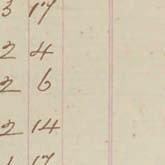 3 17
2 4
2 6
2 14
1 17